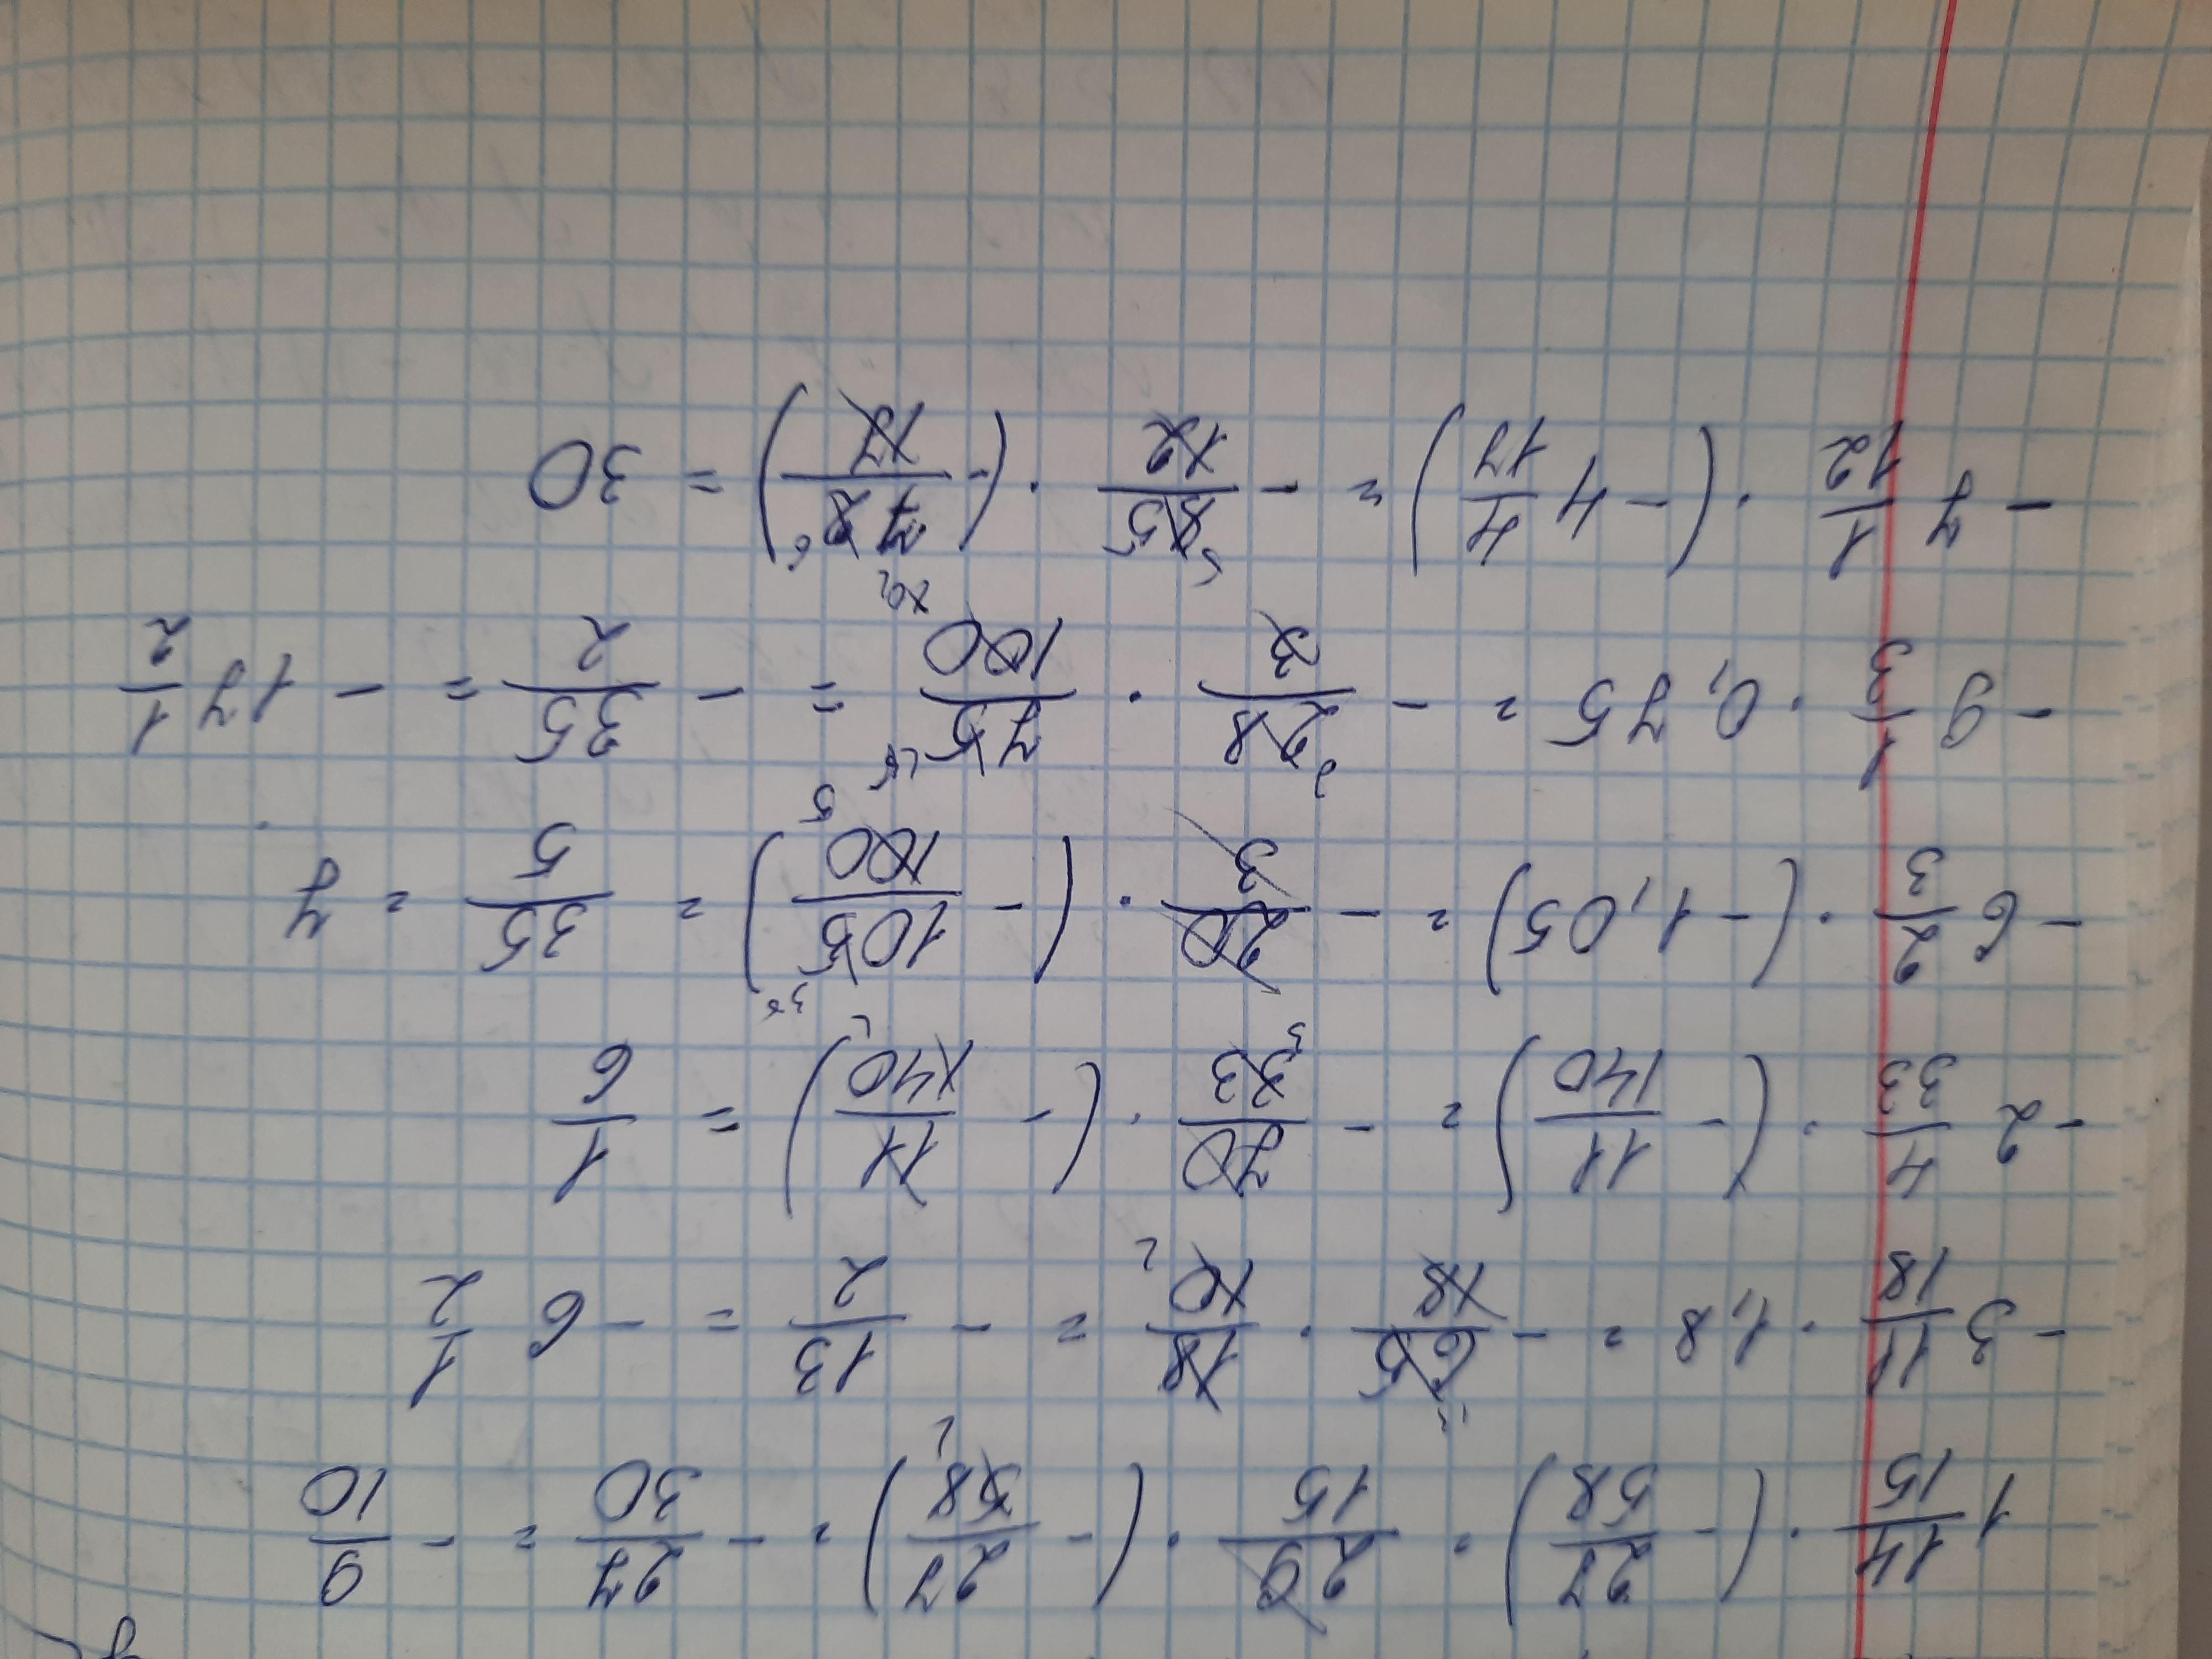 1 14/15 · (- 27/58) = 29/15 · (- 27/58 2) = - 27/30 = - 9/10
- 3 11/18 · 1,8 = - 65/18 13 · 18/10 2 = - 13/2 = - 6 1/2
- 2 4/33 · (- 11/140) = - 70/33 3 · (- 11/140 2) = 1/6
- 6 2/3 · (- 1,05) = - 20/3 · (- 105/100 35 5) = 35/5 = 7
- 9 1/3 · 0,75 = - 28/3 · 75/100 = - 35/2 = - 17 1/2
- 7 1/12 · (- 4 4/17) = - 85/12 5 · (- 72/17 6) = 30